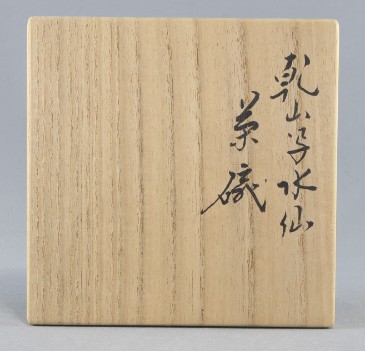 乾山写水仙
茶碗